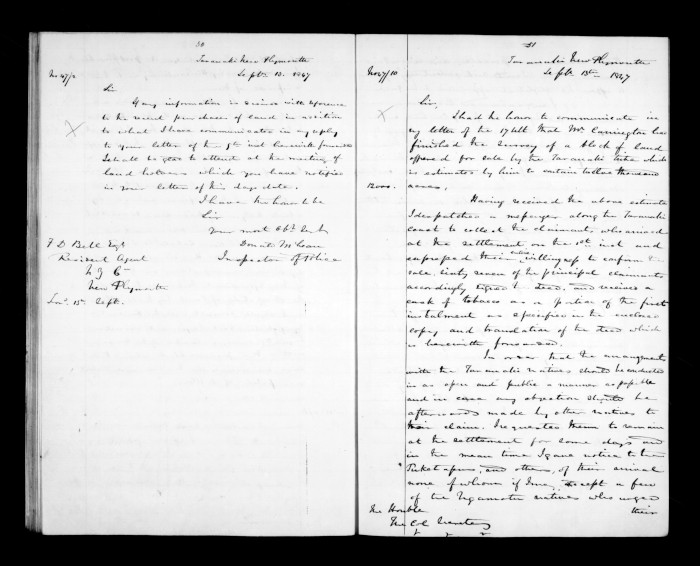 30
Taranaki New Plymouth
Septr 13. 1847
No 47/9
Sir
If any information is desired with reference
to the recent purchases of land in addition
to what I have communicated in my reply
to your letter of the 7th inst herewith forwarded
I shall be glad to attend at the meeting of
land holders which you have notified
in your letter of this days date.
I have the honor to be
Sir
Your most obt Servt
Donald McLean
Inspector of Police
F D Bell Esqr
Resident Agent
N Z Co
New Plymouth
15th Sept.
31
Taranaki New Plymouth
Septr 13th 1847
No 47/10
Sir,
I had the honor to communicate in
my letter of the 17 ult that Mr Carrington had
finished the survey of a block of land
offered for sale by the Taranaki tribe which
is estimated by him to contain twelve thousand
12000.
acres,
Having received the above estimate
I despatched a messenger along the Taranaki
coast to collect the claimants who arrived
at the settlement on the 1st inst and
expressed their entire willingness to confirm the
sale, sixty seven of the principal claimants
accordingly signed the deed, and received a
cask of tobacco as a portion of the first
instalment as specified in the enclosed
copy and translation of the deed which
is herewith forwarded.
In order that the arrangements
with the Taranaki natives should be conducted
in as open and public a manner as possible
and in case any objection should be
afterwards made by other natives to
their claim. I requested them to remain
at the settlement for some days and
in the mean time I gave notice to the
Puketapus, and others, of their arrival
none of whom if I may except a few
of the Ngamotu natives who urged
their
The Honble
The Col Secretary